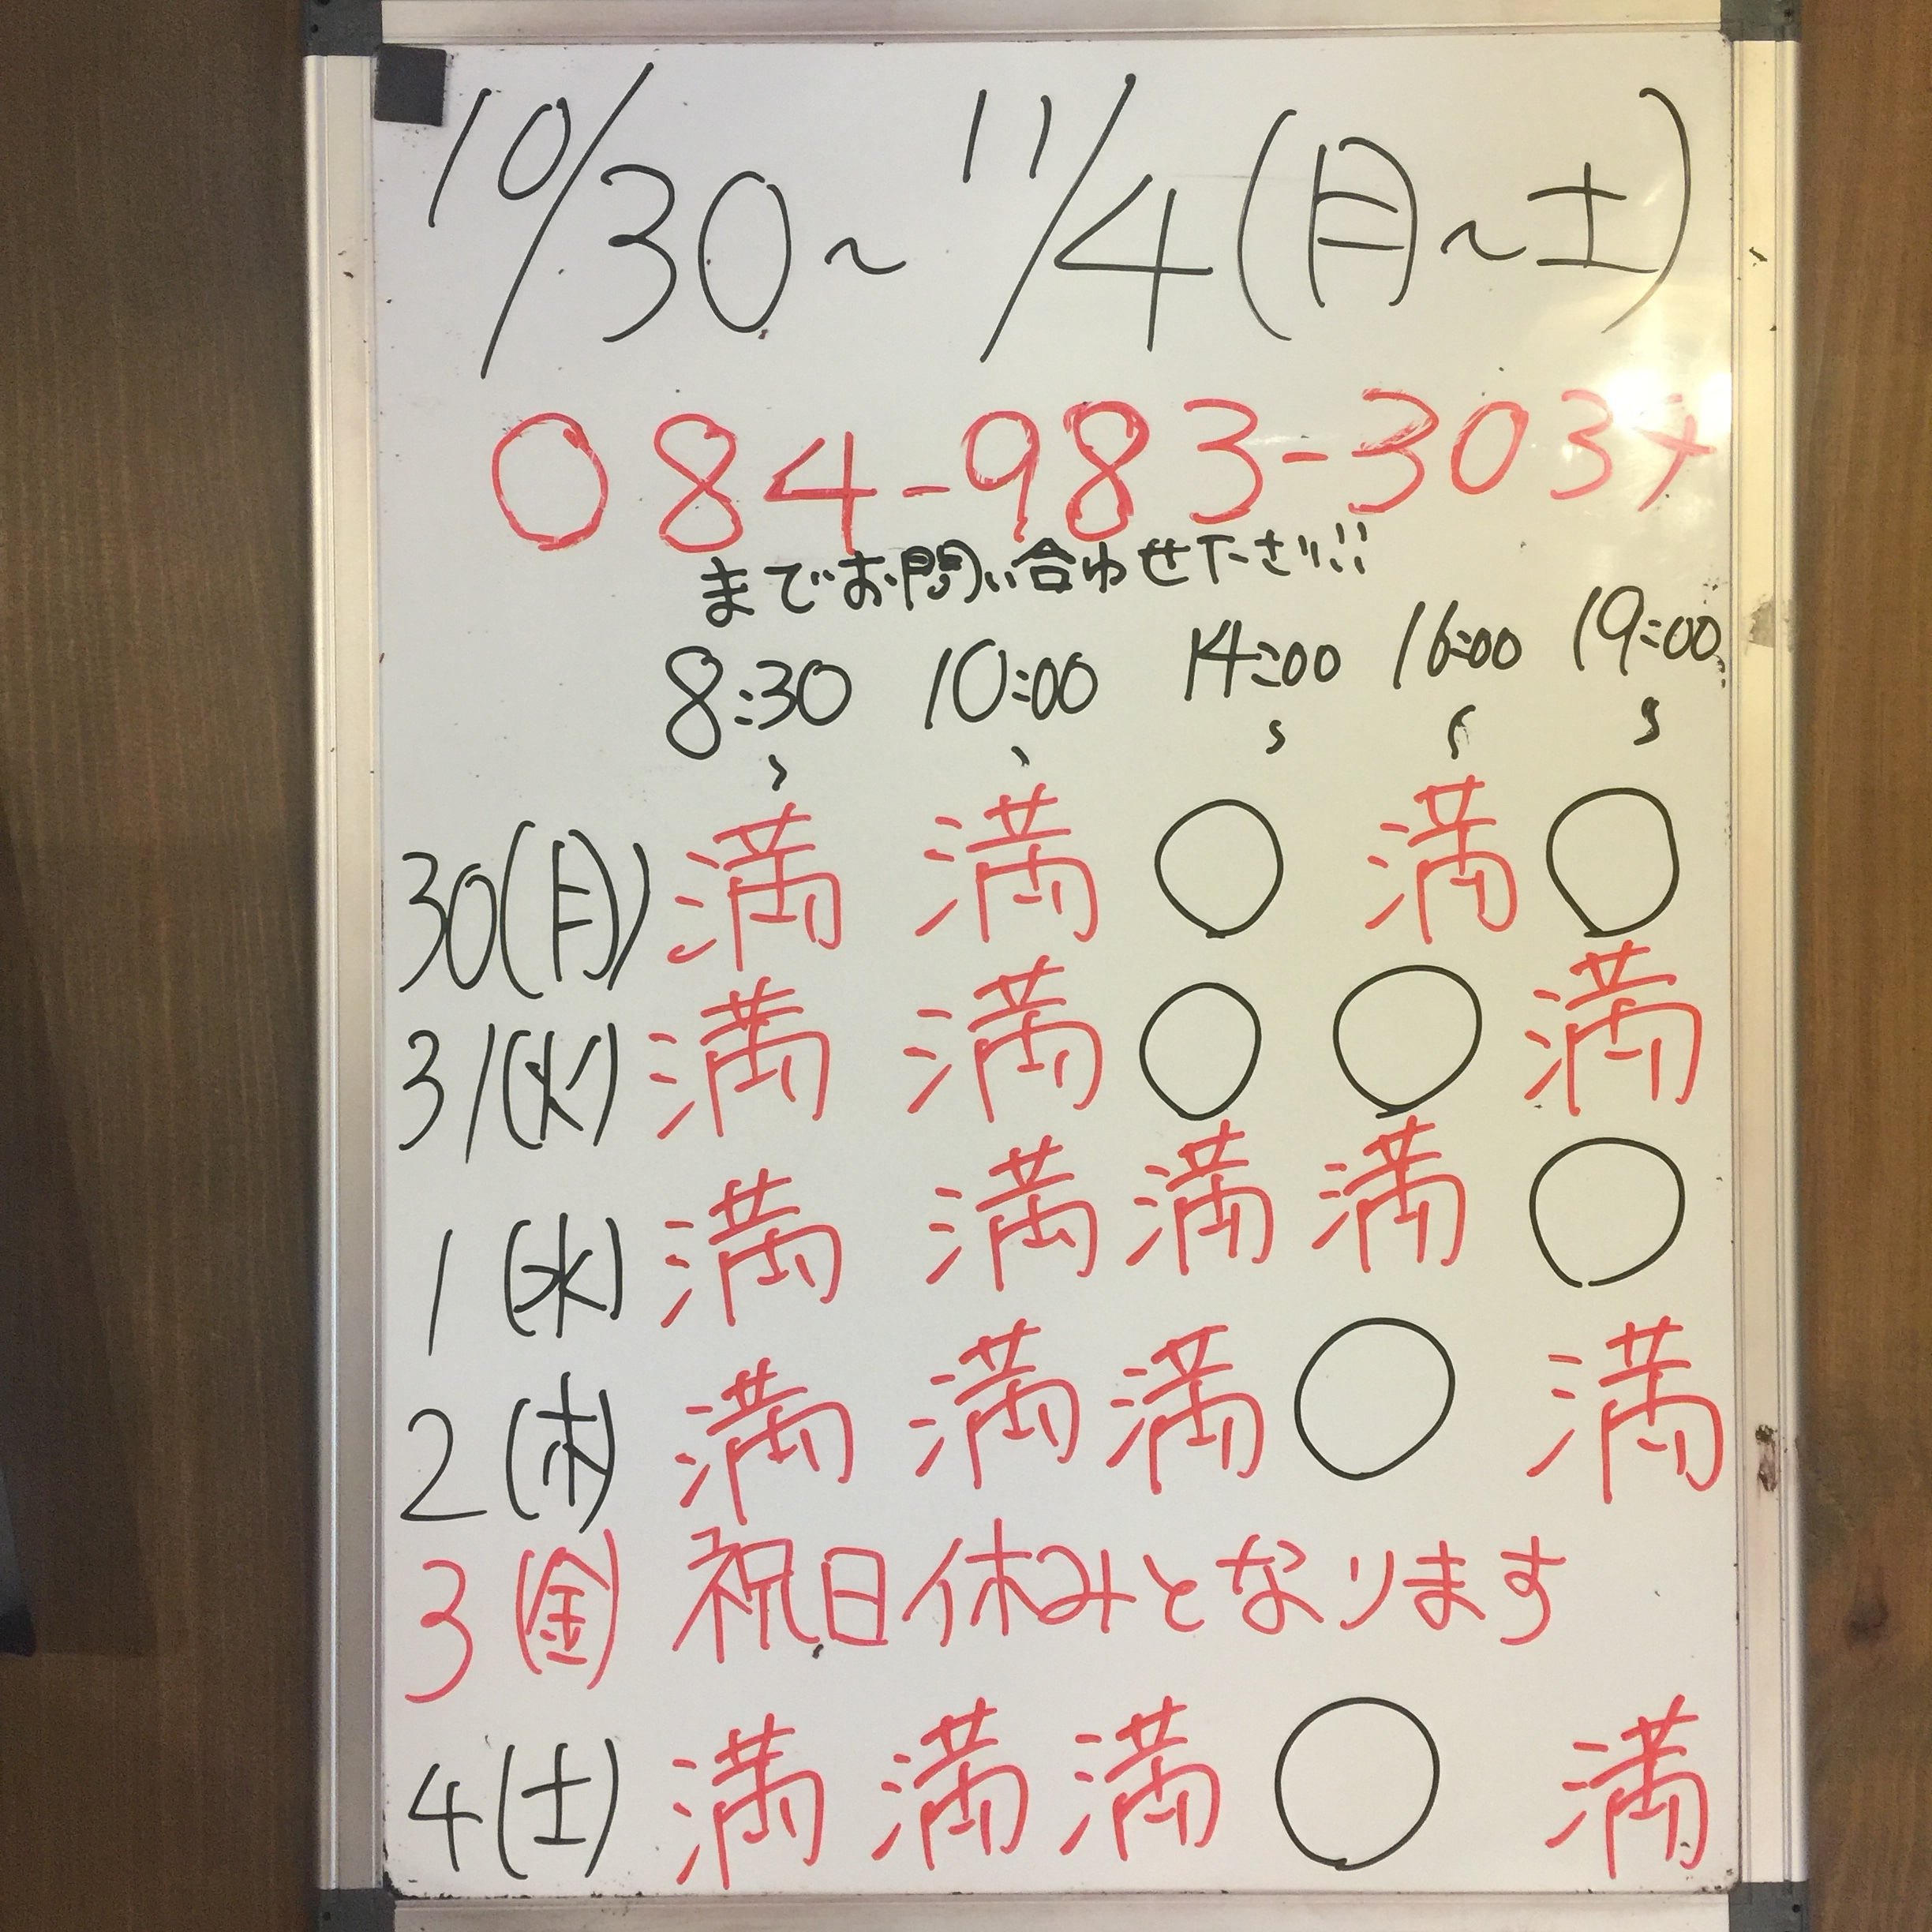 10/30~11/4(月~土)
084-983-303
までお問い合わせ下さい!!
8:30~ 10:00~ 14:00~ 16:00~ 19:00~
30(月) 満 満 ○ 満 ○
31(火) 満 満 ○ ○ 満
1(水) 満 満 満 満 ○
2(木) 満 満 満 ○ 満
3(金) 祝日休みとなります
4(土) 満 満 満 ○ 満